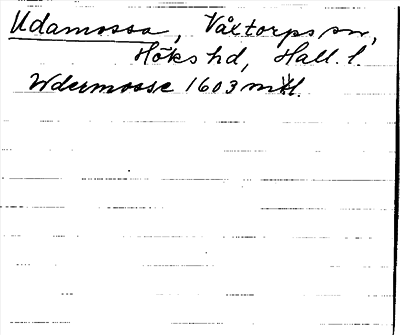 Udamossa, Våxtorps sn,
Höks hd, Hall. l.
Wdermosse 1603